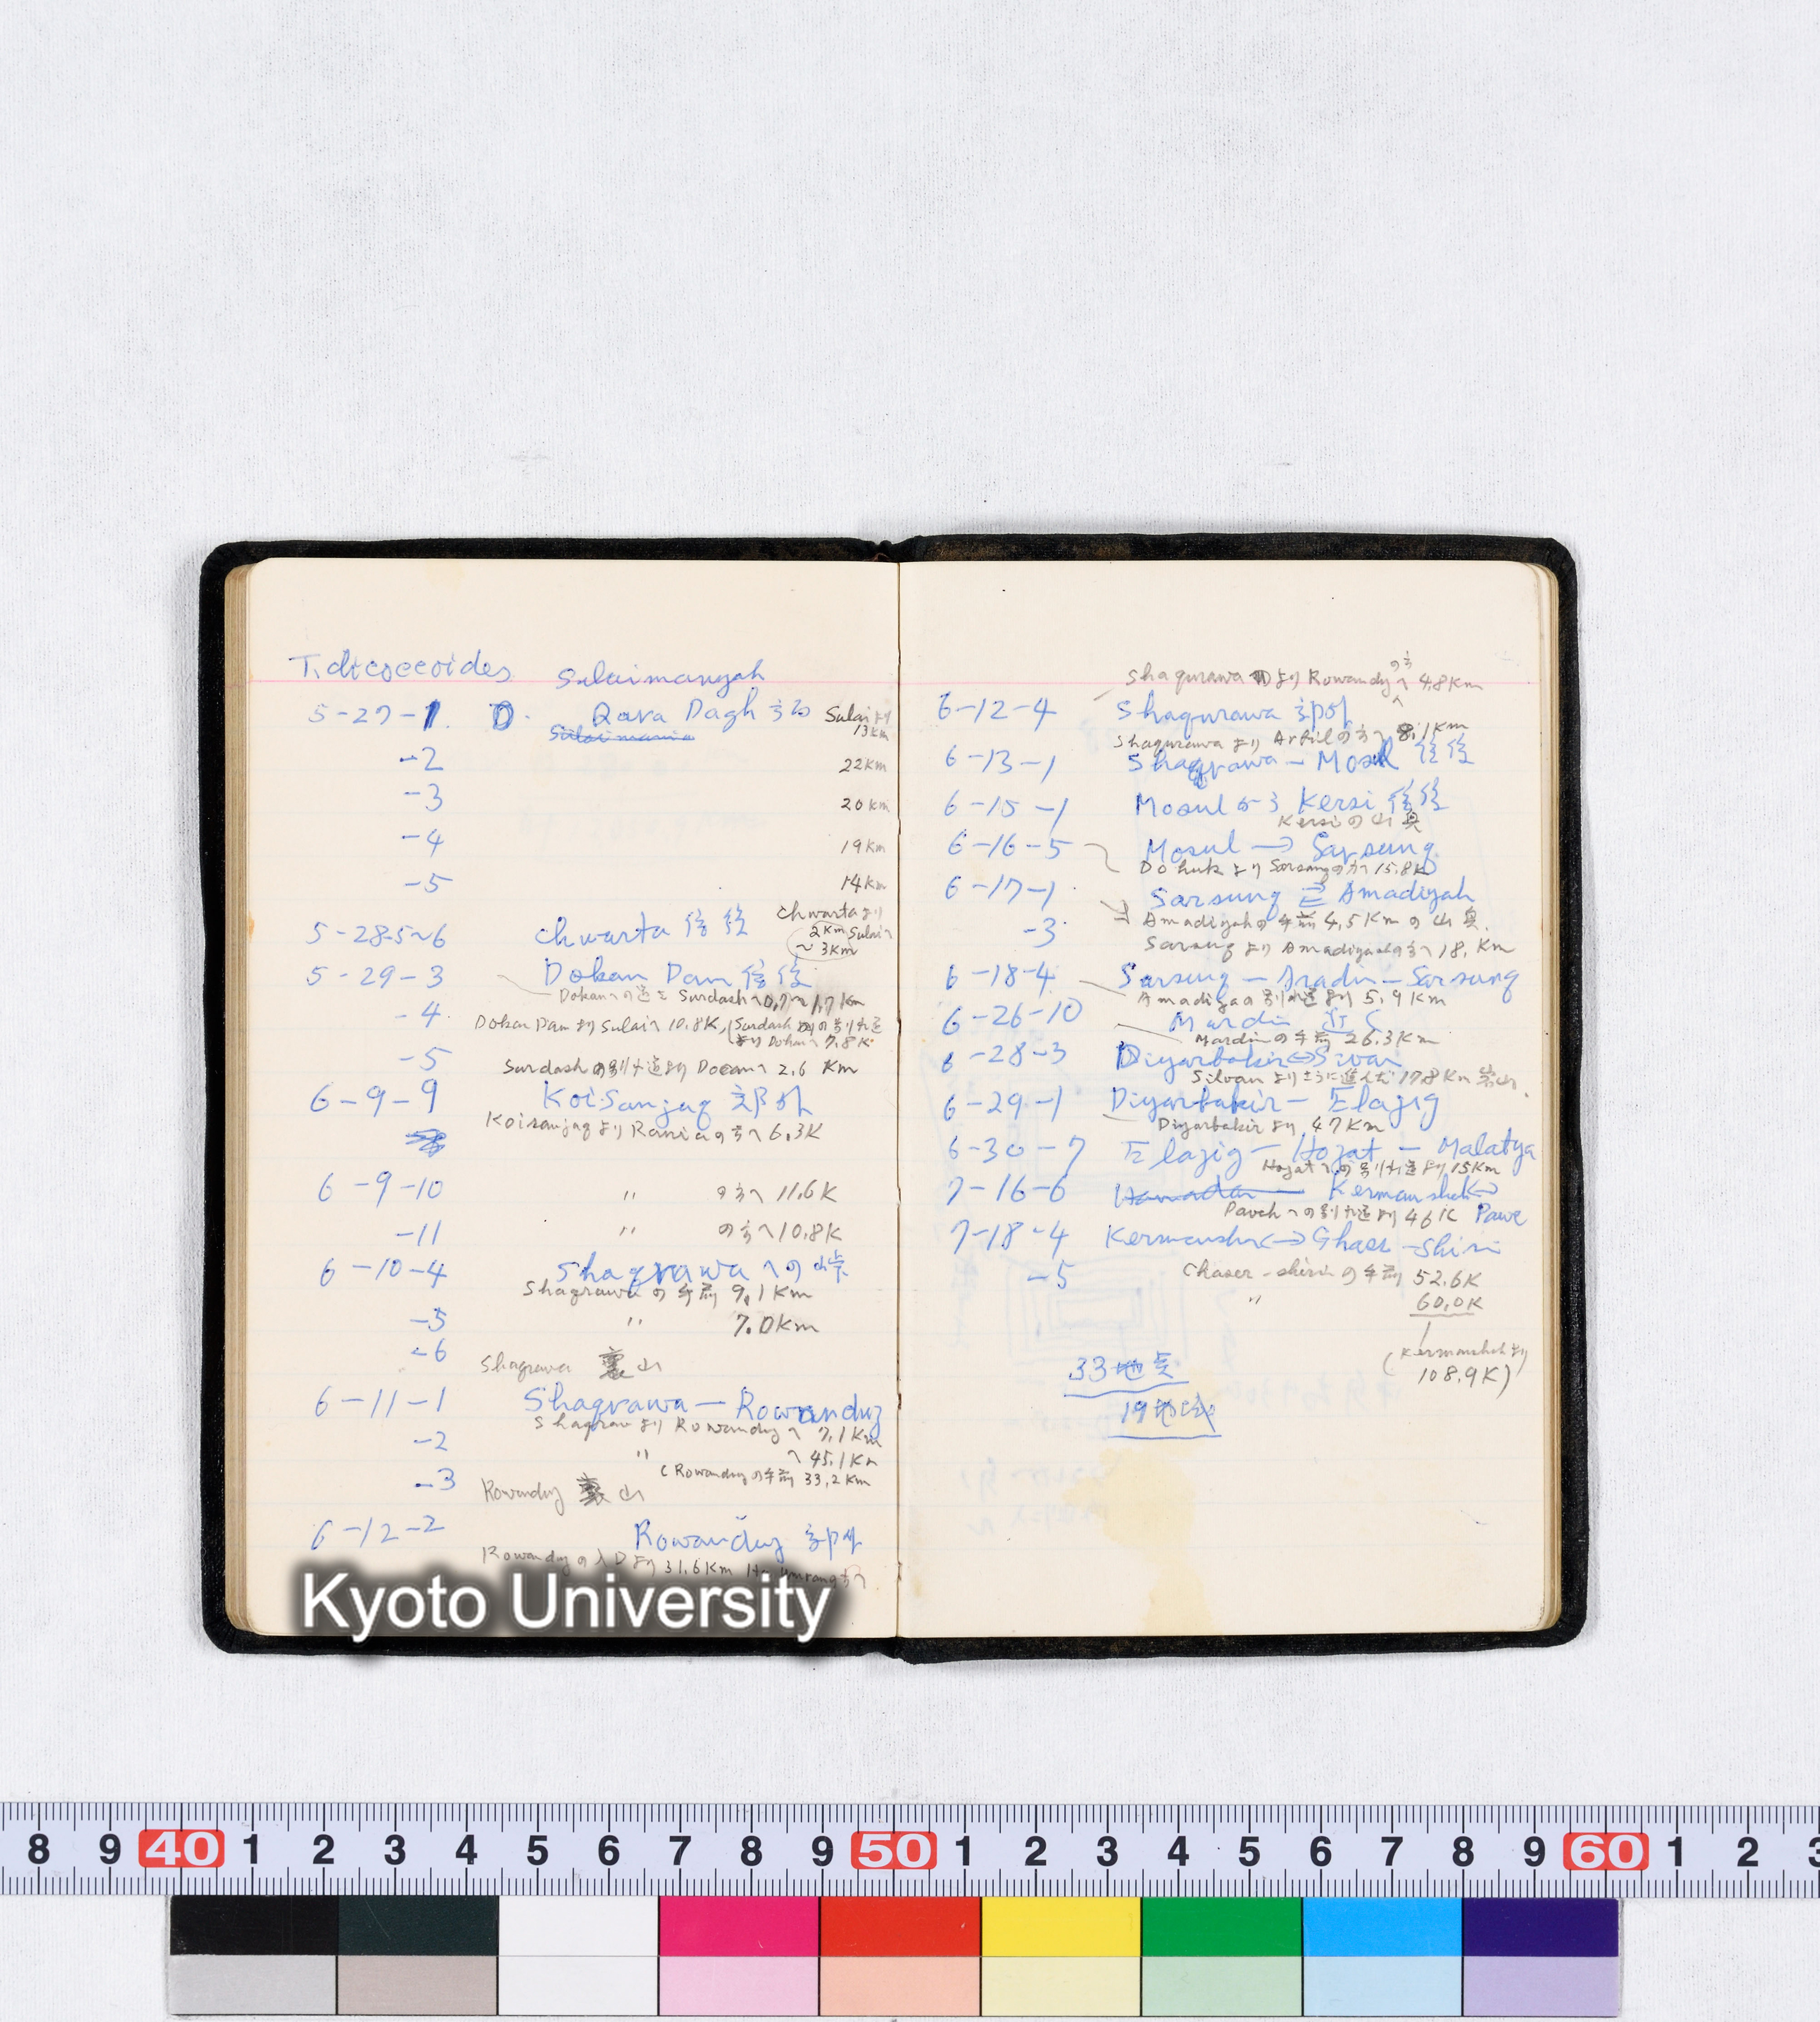 T. dicoccoides
Sulaimanyah
5-27-1. D. Qara Dagh Sulaiより 13Km
Sulaimania
-2 22Km
-3 20Km
-4 19Km
-5 14Km
5-28-5~6 Chwarta 往復 Chwartaより
2Km Sulaiへ
~3Km
5-29-3 Dokan Dam 往復
Dokanへの道を Surdashへ 0.7~1.7Km
-4 Dokan Damより Sulaiへ 10.8K, (Surdash の別れ道
より Dokanへ 7.8K
-5 Surdashの別れ道より Docanへ 2.6 Km
6-9-9 Koi Sanjaq 郊外
Koisanjaqより Raniaの方へ 6.3K
6-9-10 〃 の方へ 11.6K
-11 〃 の方へ 10.8K
6-10-4 Shaqrawa への峠
Shaqrawa の手前 9.1Km
-5 〃 7.0Km
-6 Shaqrawa 裏山
6-11-1 Shaqrawa — Rowanduz
Shaqrawより Rowanduzへ 7.1Km
-2 〃 へ 45.1Km
(Rowanduzの手前 33.2Km
-3 Rowanduz 裏山
6-12-2 Rowanduz 郊外
Rowanduzの入口より 31.6Km
Shaqurawa より Rowanduzの方へ 4.8Km
6-12-4 Shaqurawa 郊外
Shaqurawaより Arbilの方へ 8.1Km
6-13-1 Shaqrawa — Mosul 往復
6-15-1 Mosulから Kersi 往復
Kersiの山奥
6-16-5 Mosul → Sarsung
Dohukより Sarsungの方へ 15.8K
6-17-1 Sarsung ⇄ Amadiyah
Amadiyahの手前 4.5Kmの山奥.
-3 Sarsungより Amadiyahの方へ 18. Km
6-18-4 Sarsung — Aradin — Sarsung
Amadiyaの別れ道より 5.9Km
6-26-10 Mardin 近く
Mardinの手前 26.3Km
6-28-3 Diyarbakir ↔ Sivan
Silvanよりさらに進んだ 17.8Km
6-29-1 Diyarbakir — Elazig
Diyarbakirより 47Km
6-30-7 Elazig — Hozat — Malatya
Hozatへの別れ道より 15Km
7-16-6 Hamadan — Kermanshah ↔
Pavehへの別れ道より 46K Pawe
7-18-4 Kermansha ↔ Ghasr-Shirin
-5 Chaser-shirinの手前 52.6K
〃 60.0K
(Kermanshahより
108.9K)
33地点
19地点
Kyoto University
8 9 40 1 2 3 4 5 6 7 8 9 50 1 2 3 4 5 6 7 8 9 60 1 2 3